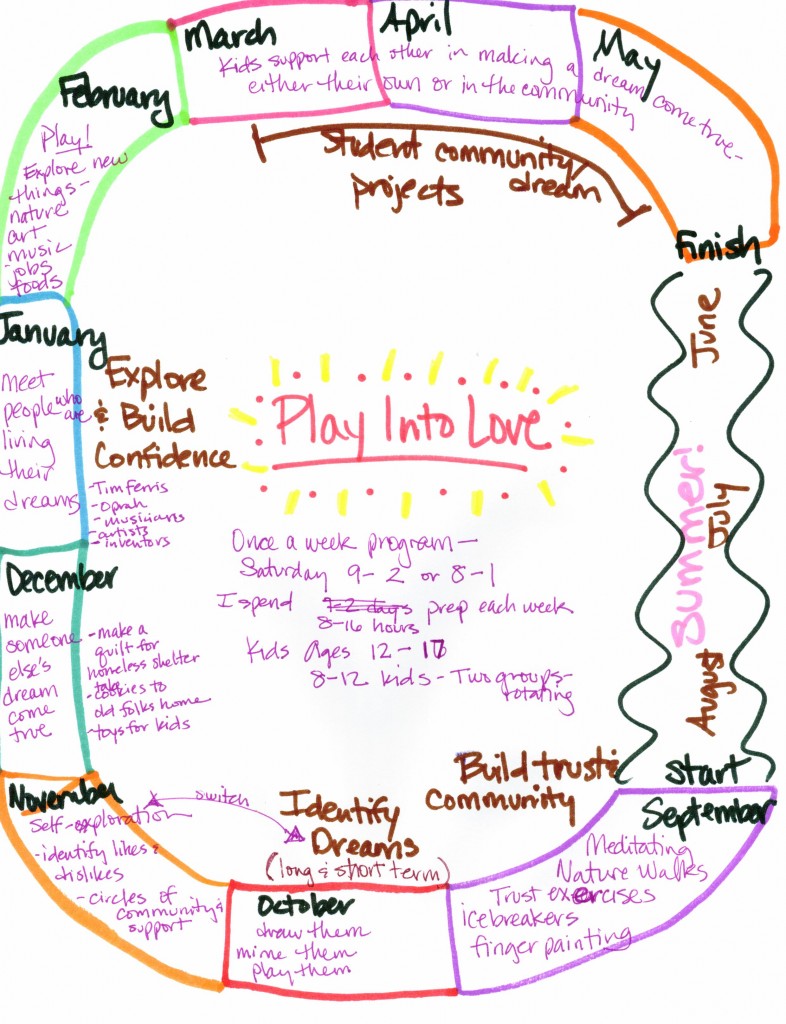 March
April
May
Kids support each other in making a dream come true-
either their own or in the community
Student community/
projects dream
February
Play!
Explore new
things-
nature
art
music
jobs
foods
Finish
June
July
August
Summer!
Start
January
meet
people who
are
living
their
dreams
Explore
& Build
Confidence
-Tim Ferris
-Oprah
-musicians
-artists
-inventors
Play Into Love
Once a week program-
Saturday 9-2 or 8-1
I spend 1-2 days prep each week
8-16 hours
Kids Ages 12-17
8-12 kids - Two groups-
rotating
December
make
someone
else's
dream
come
true
-make a
quilt for
homeless shelter
-cookies to
old folks home
-toys for kids
Build trust &
Community
November
Self-exploration
-identify likes &
dislikes
-circles of
community &
support
switch
Identify
Dreams
(long & short term)
October
draw them
mime them
play them
September
Meditating
Nature Walks
Trust exercises
icebreakers
finger painting